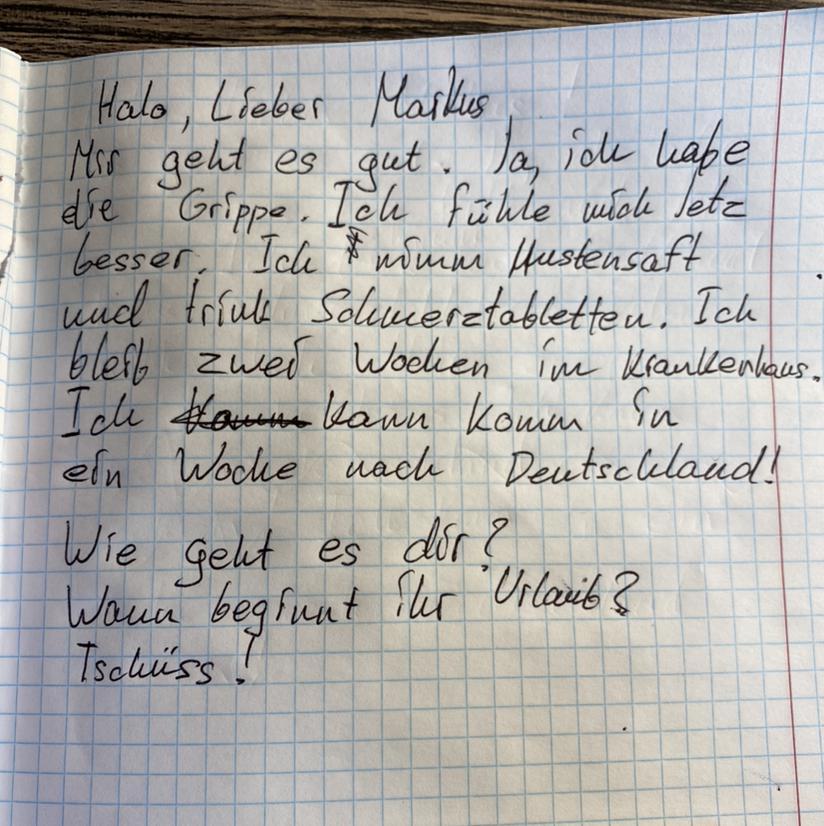 Halo, Lieber Markus,
Mir geht es gut. Ja, ich habe
die Grippe. Ich fühle mich Jetz
besser. Ich nimm Hustensaft
und trink Schmerztabletten. Ich
bleib zwei Wochen im Krankenhaus.
Ich kann komm in
ein Woche nach Deutschland!
Wie geht es dir?
Wann beginnt ihr Urlaub?
Tschüss!